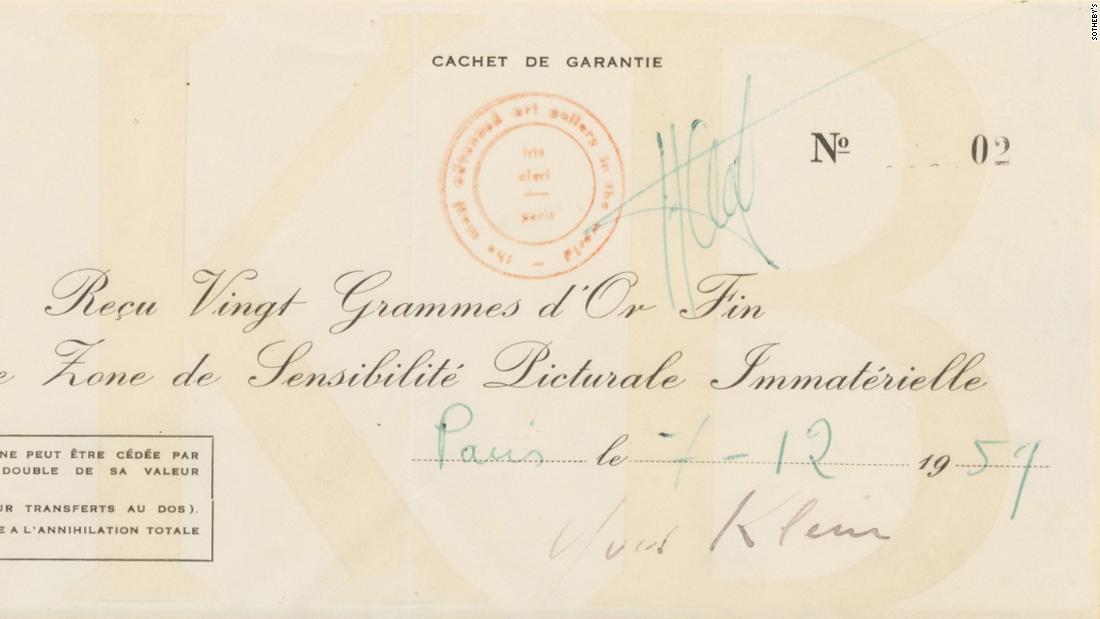 SOTHEBY'S
CACHET DE GARANTIE
the most advanced art gallery in the world –
iris
clert
paris
Nº 02
Reçu Vingt Grammes d'Or Fin
e Zone de Sensibilité Picturale Immatérielle
Paris le 7-12 1959
NE PEUT ÊTRE CÉDÉE PAR
DOUBLE DE SA VALEUR
UR TRANSFERTS AU DOS).
E A L'ANNIHILATION TOTALE
Yves Klein
K B